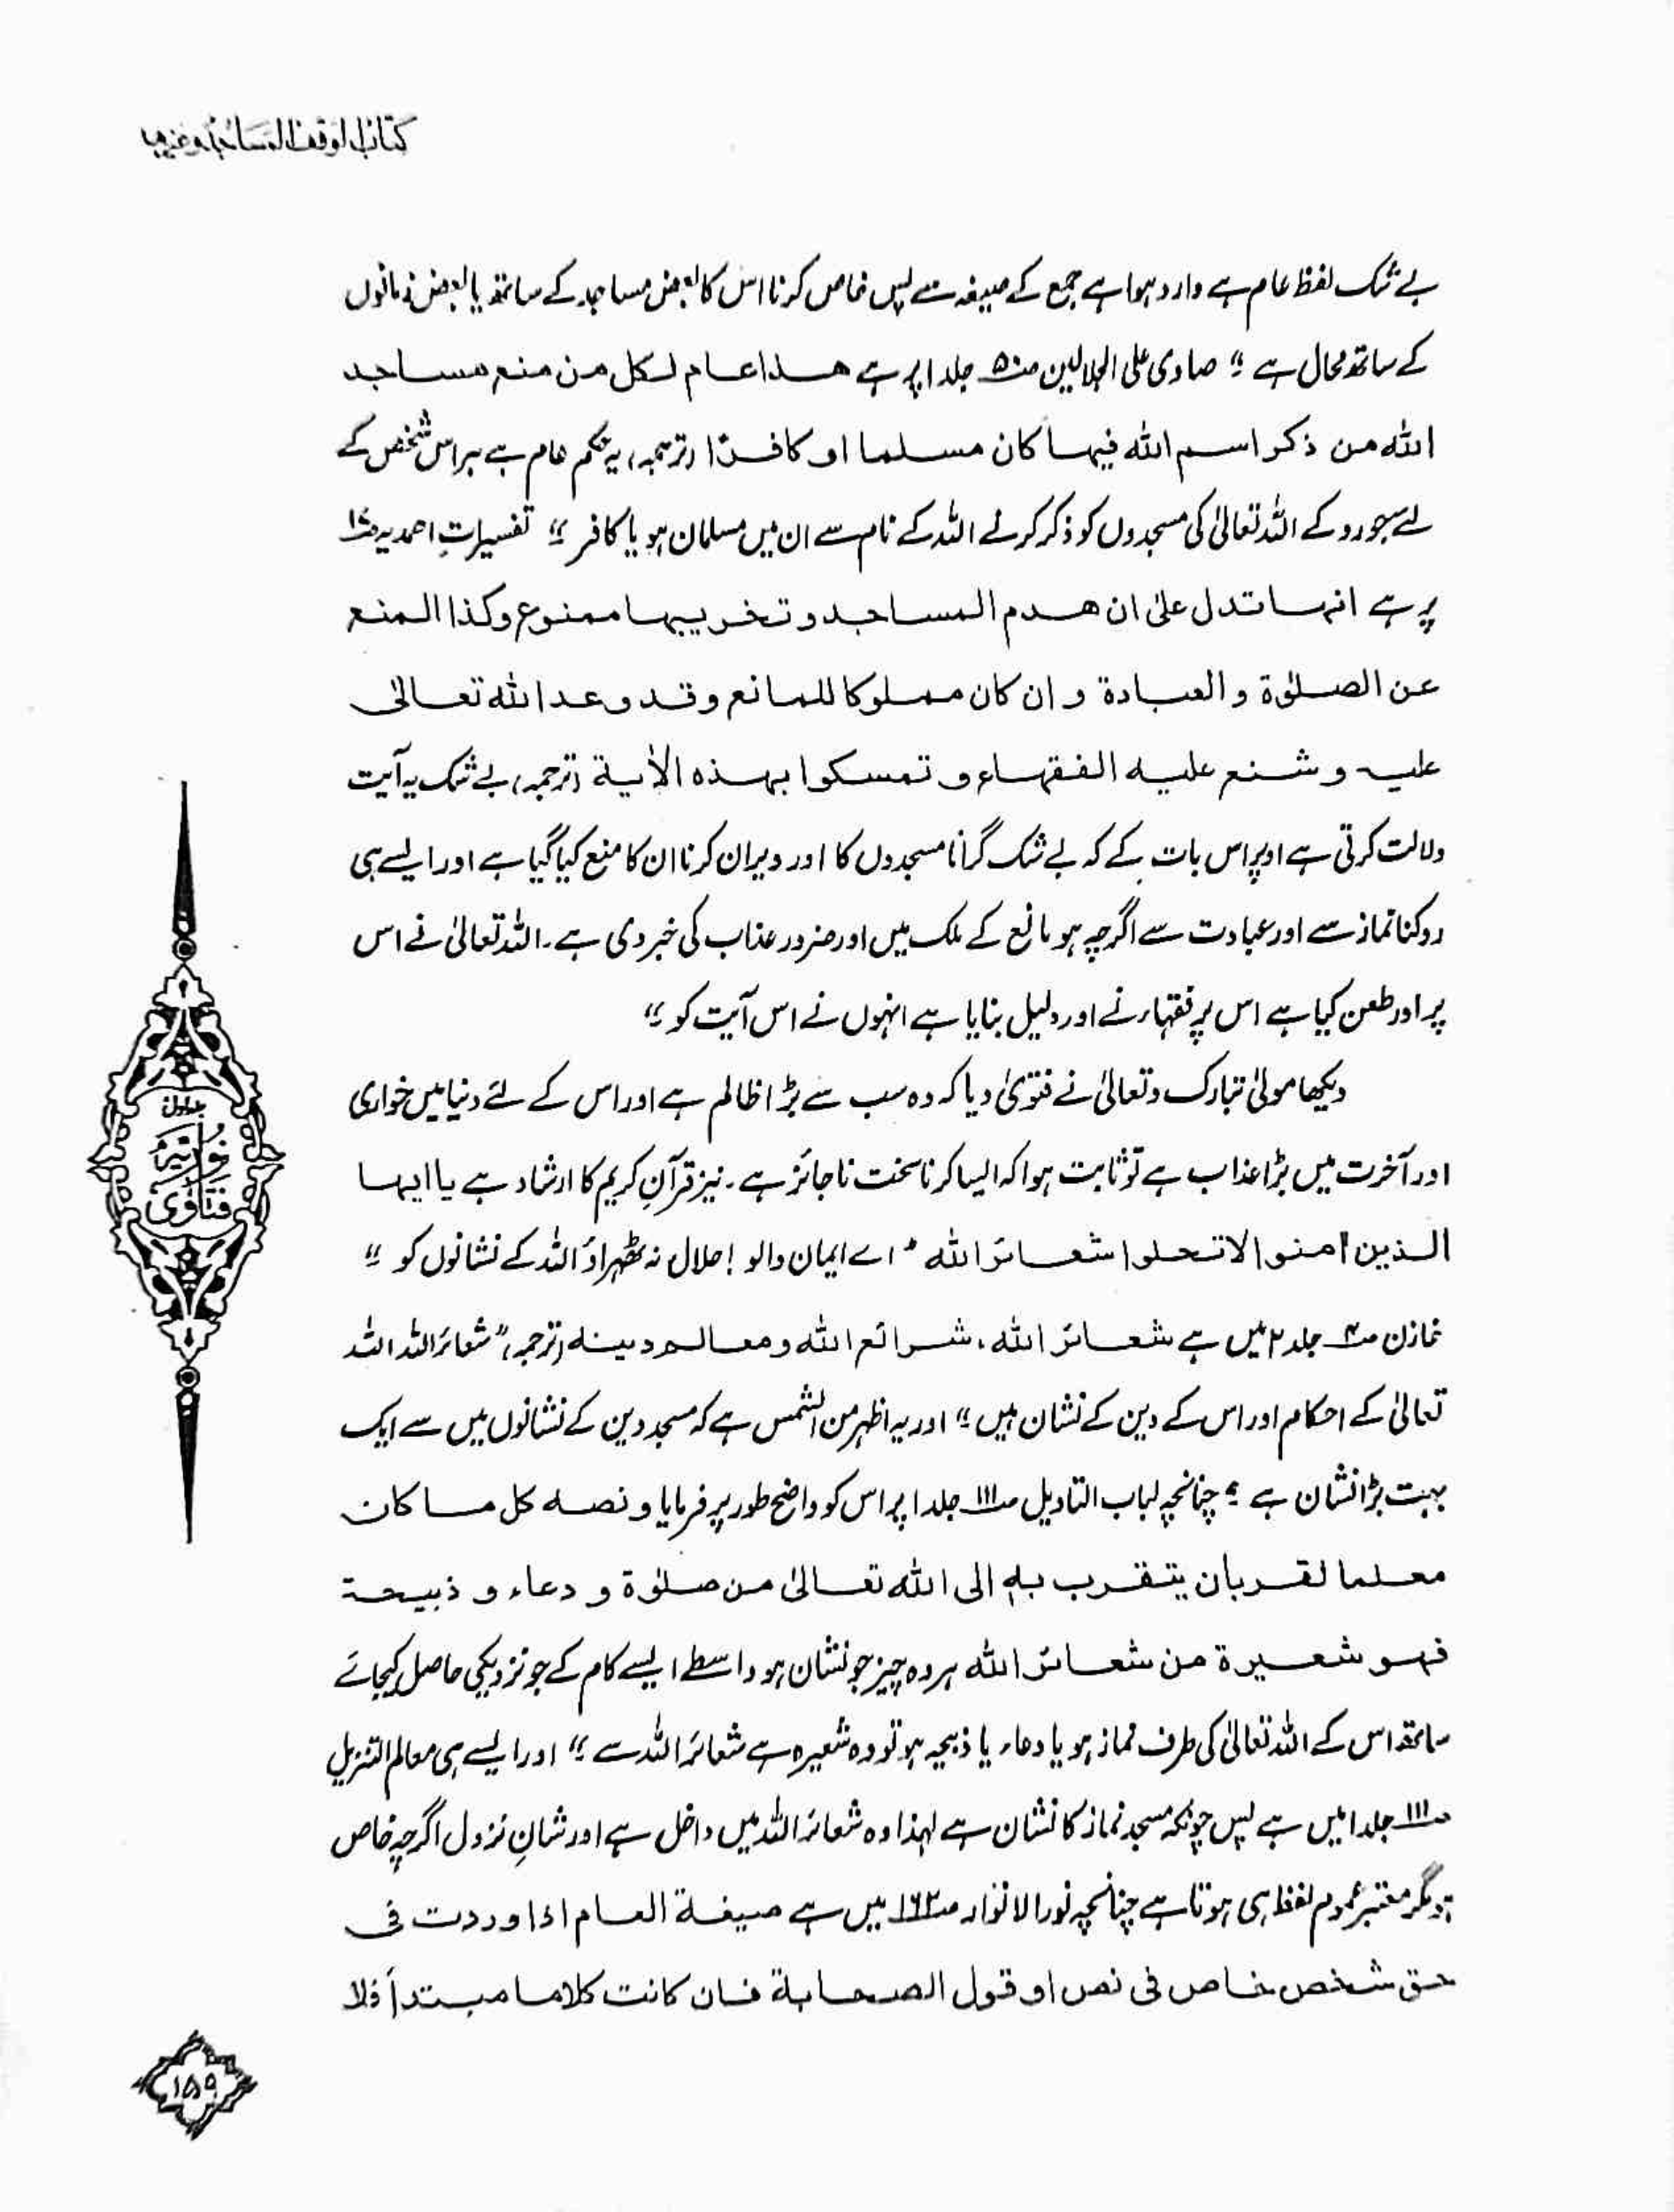 کتاب الوقف المساجد وغیرہ
بے شک لفظ عام ہے وارد ہوا ہے جمع کے صیغہ سے پس خاص کرنا اس کا بعض مساجد کے ساتھ یا بعض زمانوں
کے ساتھ محال ہے ؛؛ صاوی علی الجلالین ص۵۰ جلد ا پر ہے ھذا عام لکل من منع مساجد
اللہ من ذکر اسم اللہ فیہا کان مسلما او کافرًا (ترجمہ) یہ حکم عام ہے ہر اس شخص کے
لئے جو روکے اللہ تعالیٰ کی مسجدوں کو ذکر کرنے اللہ کے نام سے ان میں مسلمان ہو یا کافر ؛؛ تفسیراتِ احمدیہ
پر ہے انہا تدل علیٰ ان ھدم المساجد و تخریبہا ممنوع وکذا المنع
عن الصلوٰۃ و العبادۃ و ان کان مملوکا للمانع وقد وعد اللہ تعالیٰ
علیہ و شنع علیہ الفقہاء و تمسکوا بہذہ الاٰیۃ (ترجمہ) بے شک یہ آیت
دلالت کرتی ہے اوپر اس بات کے کہ بے شک گرانا مسجدوں کا اور ویران کرنا ان کا منع کیا گیا ہے اور ایسے ہی
روکنا نماز سے اور عبادت سے اگرچہ ہو مانع کے ملک میں اور ضرور عذاب کی خبر دی ہے۔ اللہ تعالیٰ نے اس
پر اور طعن کیا ہے اس پر فقہاء نے اور دلیل بنایا ہے انہوں نے اس آیت کو ؛؛
دیکھا مولیٰ تبارک وتعالیٰ نے فتویٰ دیا کہ وہ سب سے بڑا ظالم ہے اور اس کے لئے دنیا میں خواری
اور آخرت میں بڑا عذاب ہے تو ثابت ہوا کہ ایسا کرنا سخت ناجائز ہے۔ نیز قرآنِ کریم کا ارشاد ہے یا ایہا
الذین اٰمنوا لا تحلوا شعائر اللہ " اے ایمان والو! حلال نہ ٹھہراؤ اللہ کے نشانوں کو ؛؛
خازن ص۴ جلد ۲ میں ہے شعائر اللہ، شرائع اللہ ومعالم دینہ (ترجمہ) "شعائر اللہ اللہ
تعالیٰ کے احکام اور اس کے دین کے نشان ہیں ؛؛ اور یہ اظہر من الشمس ہے کہ مسجد دین کے نشانوں میں سے ایک
بہت بڑا نشان ہے ؛ چنانچہ لباب التاویل ص۱۱۱ جلد ا پر اس کو واضح طور پر فرمایا و نصہ کل ما کان
معلما لقربان یتقرب بہ الی اللہ تعالیٰ من صلوٰۃ و دعاء و ذبیحۃ
فہو شعیرۃ من شعائر اللہ ہر وہ چیز جو نشان ہو واسطے ایسے کام کے جو نزدیکی حاصل کیجائے
ساتھ اس کے اللہ تعالیٰ کی طرف نماز ہو یا دعاء یا ذبیحہ ہو تو وہ شعیرہ ہے شعائر اللہ سے ؛؛ اور ایسے ہی معالم التنزیل
ص۱۱۱ جلد ا میں ہے پس چونکہ مسجد نماز کا نشان ہے لہٰذا وہ شعائر اللہ میں داخل ہے اور شانِ نزول اگرچہ خاص
ہو مگر معتبر عموم لفظ ہی ہوتا ہے چنانچہ نور الانوار ص۱۶۳ میں ہے صیغۃ العام اذا وردت فی
حق شخص خاص فی نص او قول الصحابۃ فان کانت کلاما مبتدأ فلا
جلد اول
نوریہ
فتاویٰ
۱۵۹